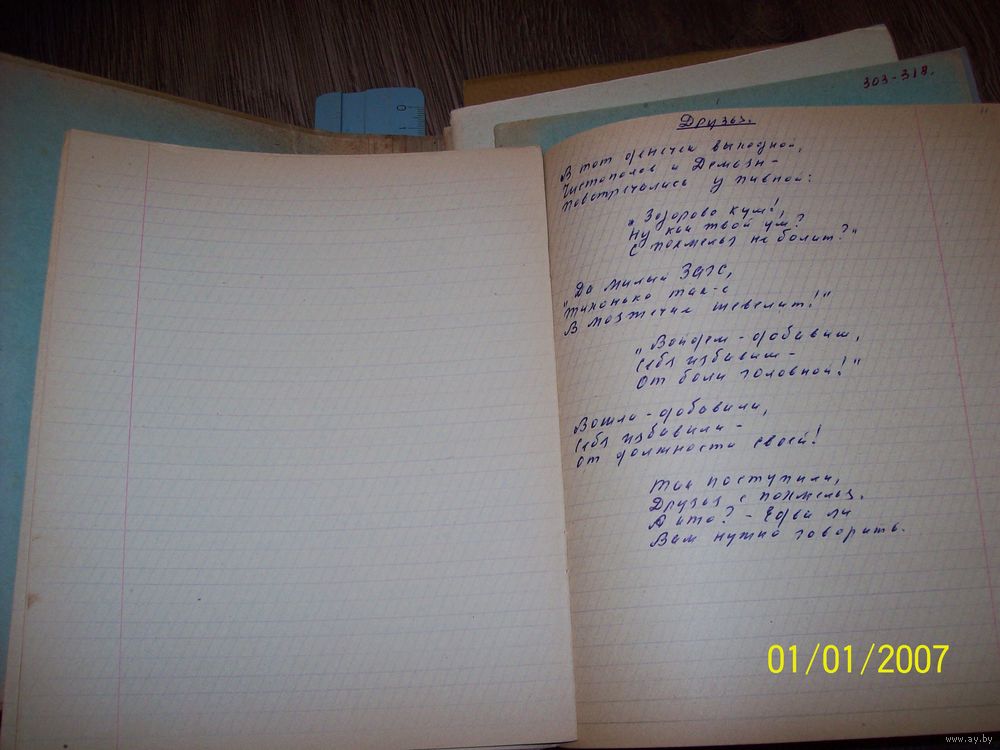 303-318.
0
1
Друзья.
В тот денечек выходной,
Чистополов и Демьян -
повстречались у пивной:
„Здорово кум!,
Ну как твой ум?
С похмелья не болит?"
"Да милый Загс,
тихонько так-с
В мозжечке шевелит!"
„Войдем - добавим,
себя избавим -
От боли головной!"
Вошли - добавили,
себя избавили -
от должности своей!
Так поступили,
Друзья с похмелья.
А кто? - Едва ли
Вам нужно говорить.
01/01/2007
www.ay.by